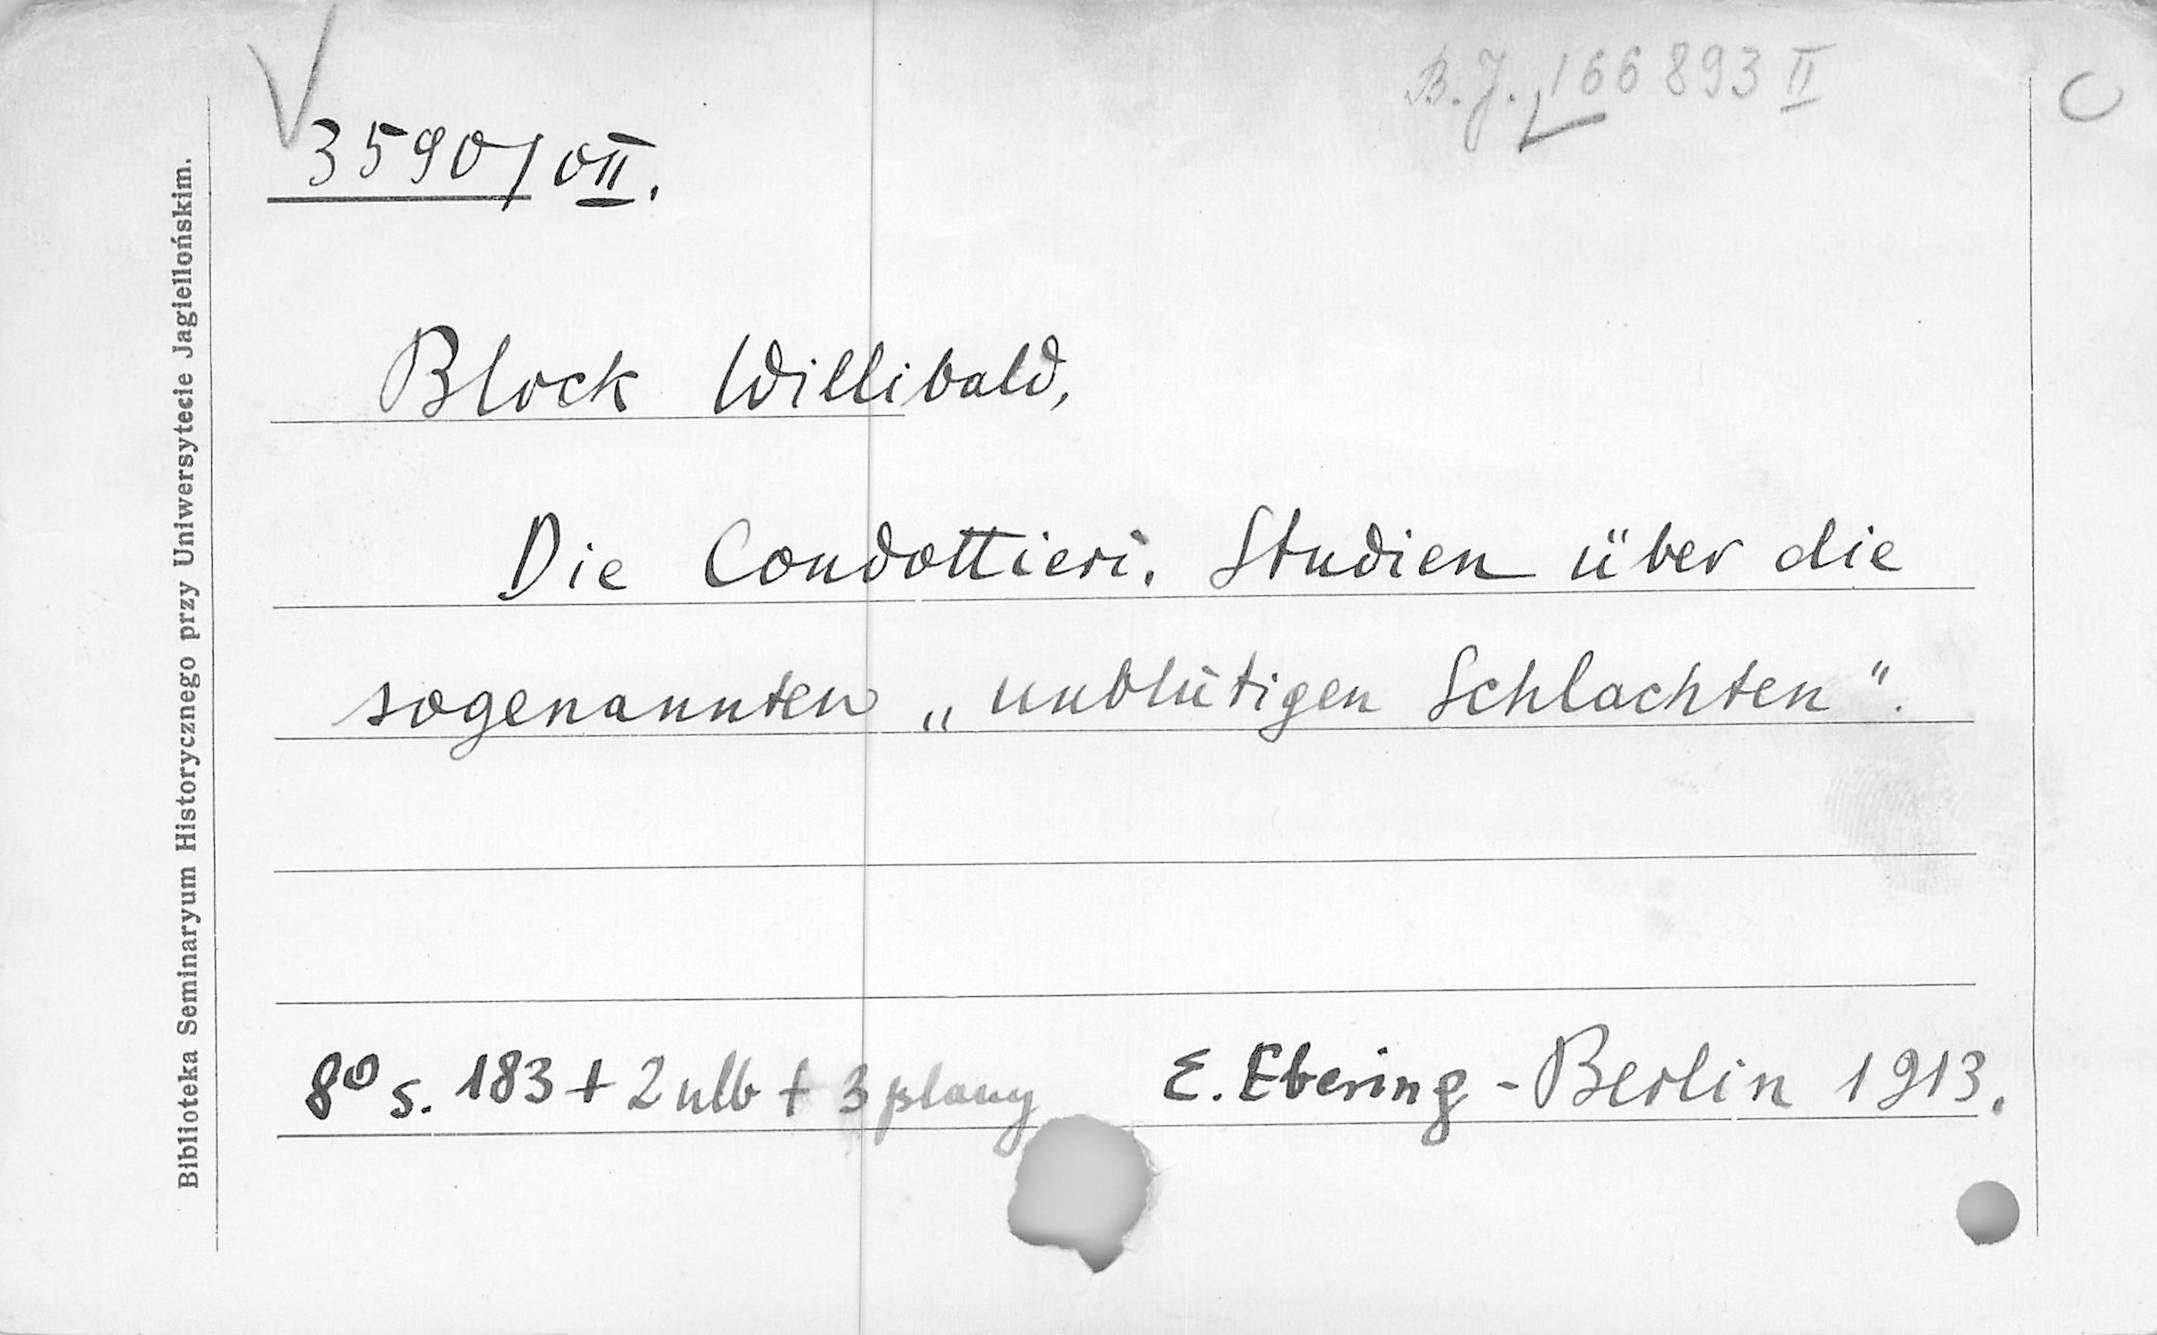 B. J. 166 893 II
3590/OII.
Block Willibald,
Die Condottieri. Studien über die
sogenannten „unblutigen Schlachten".
8⁰ s. 183 + 2 nlb + 3 plany E. Ebering - Berlin 1913.
Biblioteka Seminaryum Historycznego przy Uniwersytecie Jagiellońskim.